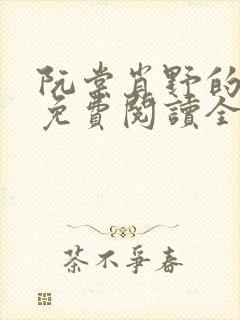 阮棠肖野的
免費閱讀全
茶不爭春